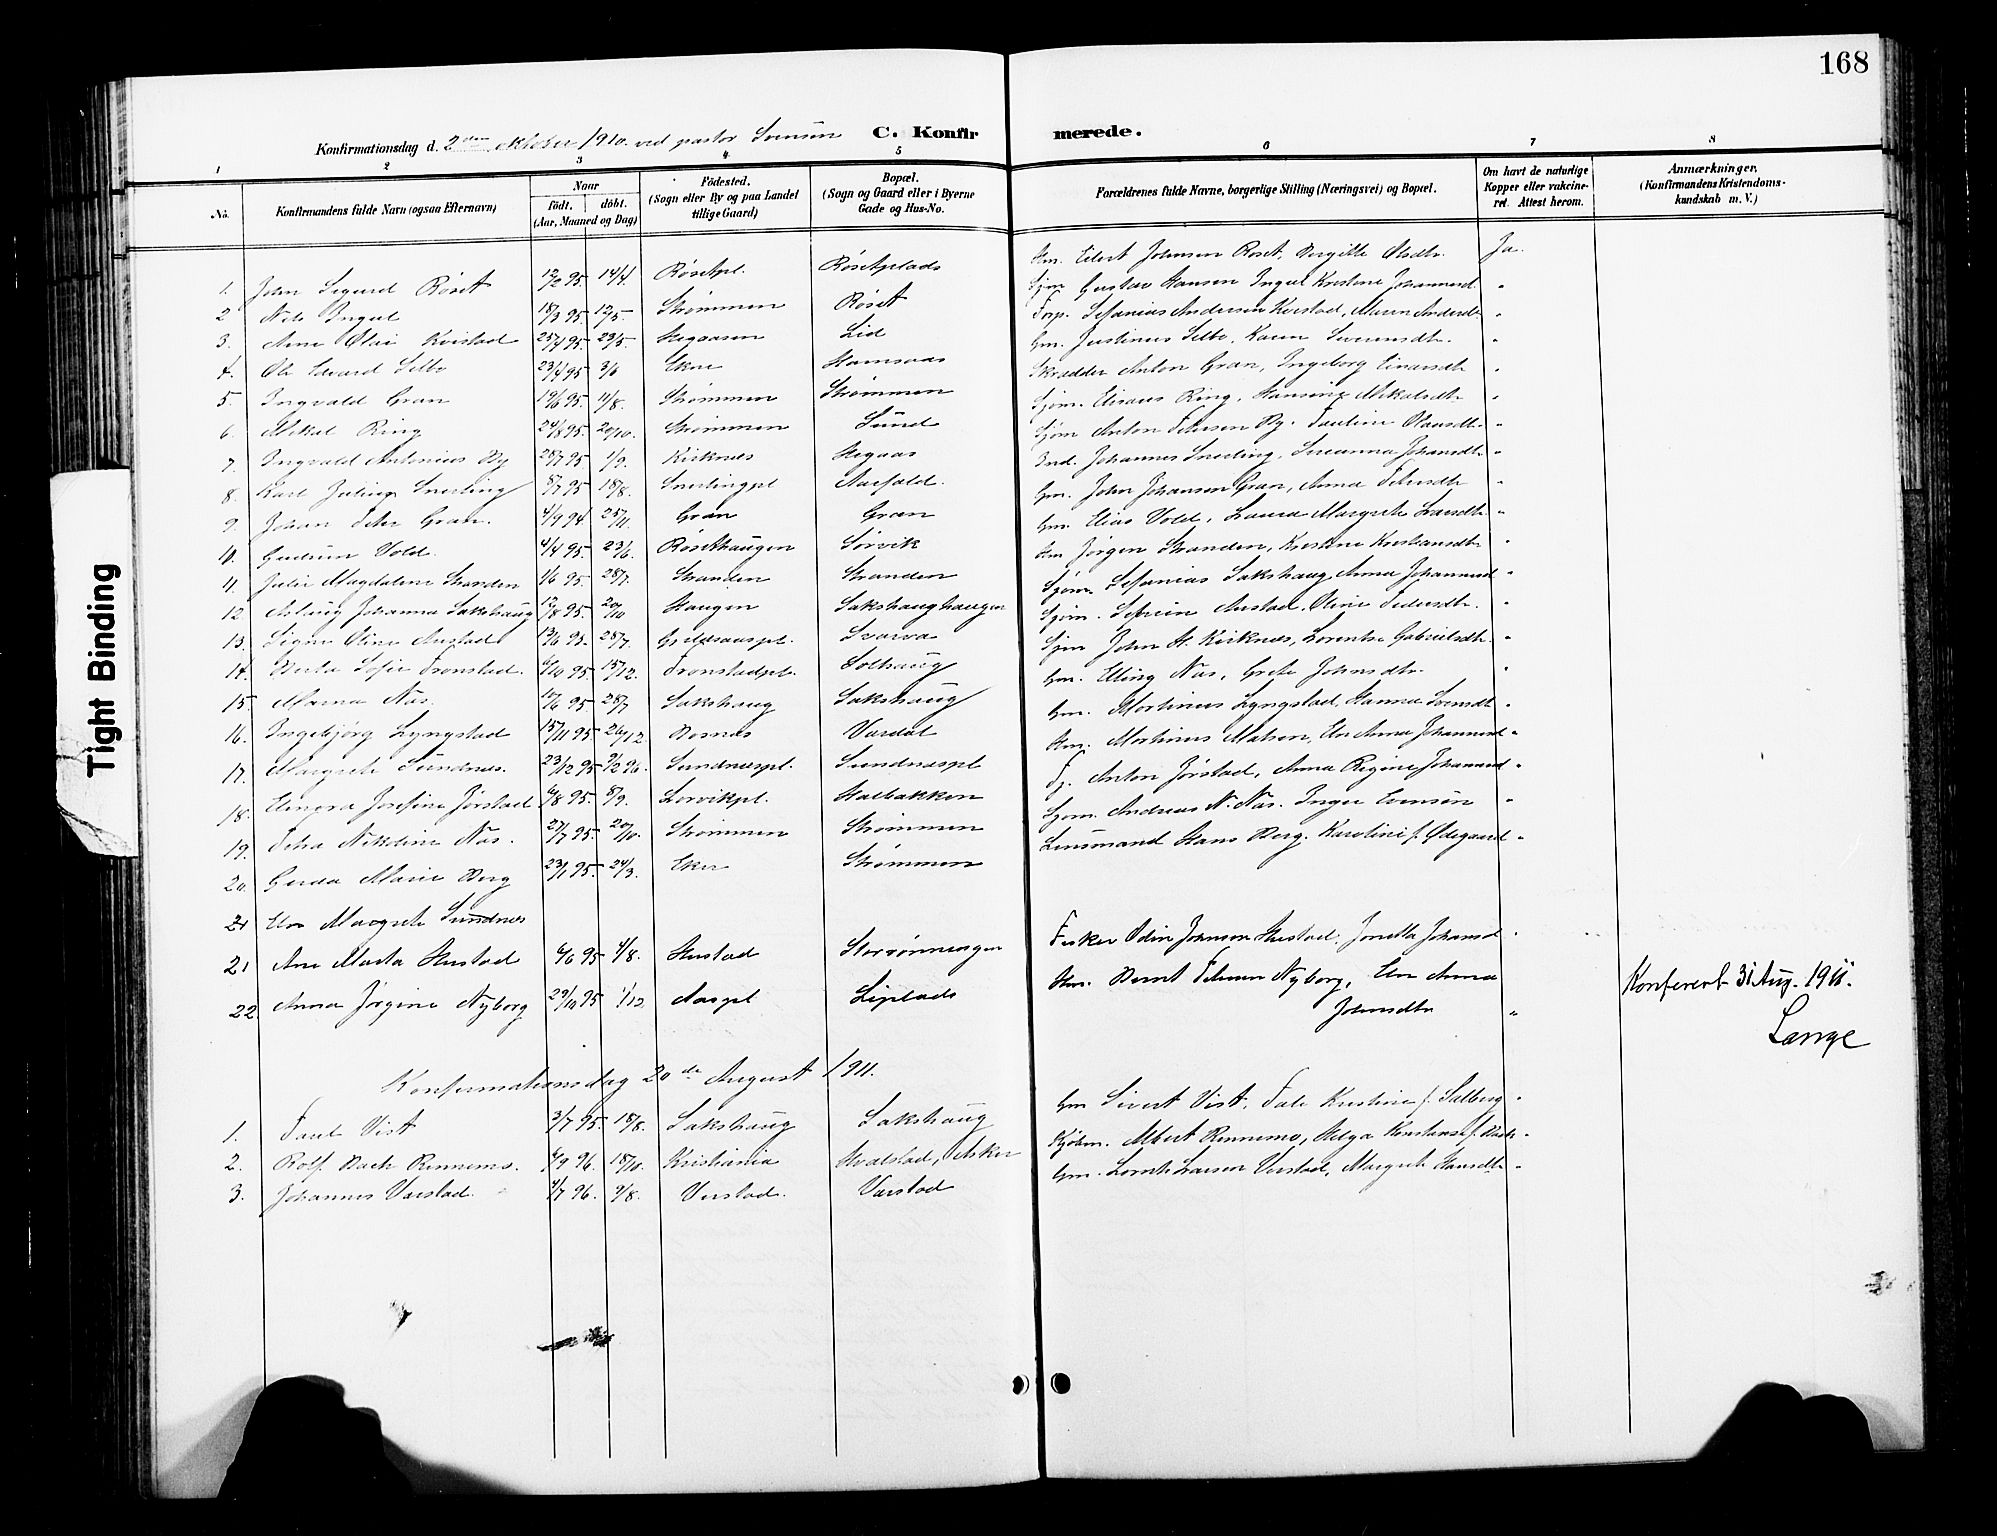 168
Konfirmationsdag d. 2den oktober 1910 ved pastor Svensen C. Konfirmerede.
1 2 3 4 5 6 7 8
No. Konfirmandens fulde Navn (ogsaa Efternavn) Naar født. døbt. (Aar, Maaned og Dag) Fødested. (Sogn eller By og paa Landet tillige Gaard) Bopæl. (Sogn og Gaard eller i Byerne Gade og Hus-No. Forældrenes fulde Navne, borgerlige Stilling (Næringsvei) og Bopæl. Om havt de naturlige Kopper eller vakcineret. Attest herom. Anmærkninger. (Konfirmandens Kristendomskundskab m. V.)
1. John Sigurd Røset 12/2 95. 14/4. Røsetpl. Røsetplads Hm. Eilert Johnsen Røset, Bergitte Olsdtr. Ja.
2 Nils Ingul 18/3 95. 12/5. Strømmen Røset Sjøm Gustav Hansen Ingul Kristine Johannesd "
3. Arne Olai Kvistad 25/4 95. 23/5. Hegaasen Lid Forp. Sefanias Andersen Kvistad, Maren Andersdtr "
4. Ole Edvard Selbo 23/4 95 3/6 Ekne Hamsaas Gm. Justinus Selbo, Karen Sverensdtr. "
5. Ingvald Gran 19/6 95. 11/8. Strømmen Strømmen Skrædder Anton Gran, Ingeborg Einarsdtr "
6. Mikal Ring 24/8 95. 20/10. Strømmen Sund Sjøm. Eliseus Ring, Hansine Mikalsdtr "
7. Ingvald Antonius By 28/7 95 1/9. Kirknes Hegaas Sjøm Anton Petersen By. Pauline Olausdtr "
8. Karl Julius Snerting 8/7 95 18/8. Snertingpl Aasfald. Ind. Johannes Snerting, Susanna Johansdtr "
9. Johan Peter Gran. 4/9 94. 25/11. Gran Gran Gm. John Johansen Gran, Anna Petersdtr "
10. Gudrun Vold. 4/4 95. 23/6. Røsethaugen Sørvik Gm. Elias Vold, Laura Margrete Larsdtr "
11. Julie Magdalene Stranden 1/6 95. 28/7. Stranden Stranden Hm Jørgen Stranden, Kristine Kristiansdtr "
12. Aslaug Johanna Sakshaug 12/8 95. 20/10 Haugen Sakshaughaugen Sjøm. Sefanias Sakshaug Anna Johannesd "
13. Signe Oline Austad 13/6 95. 28/7. Svarva Sjøm. Austad, Oline Pedersdtr. "
14. Berta Sofie Tronstad. 6/10 95. 15/12. Tronstadpl. Solhaug Sjøm John H. Kirknes, Lorentse Gabrielsdtr "
15. Marna Nås. 10/6 95. 28/7 Sakshaug Sakshaug Gm. Elling Nås, Grete Johnsdtr. "
16. Ingebjørg Lyngstad 15/11 95 26/12. Bosnes Vardal Gm. Mortinus Lyngstad, Hanna Svensdtr "
17. Margrete Sundnes. 23/12 95 9/2 96. Sundnespl. Sundnespl Hm. Mortinus Matsen, Elen Anna Johannesd "
18. Elenora Josefine Jørstad 6/8 95. 8/9. Sørvikpl. Halbakken Fz. Anton Jørstad, Anna Regine Johannesd "
19. Petra Nikoline Nås. 27/7 95. 20/10. Strømmen Strømmen Sjøm. Andreas N. Nås. Inger Evensen "
20. Gerda Marie Berg 23/1 95. 24/3. Eker Strømmen Lensmand Hans Berg. Karoline f. Ødegaard "
21 Elen Margrete Sundnes
21 Ane Marta Hustad 6/6 95 4/8. Hustad Storsønnesegen Fisker Odin Johnsen Hustad. Jonetta Johansd "
22. Anna Jørgine Nyborg 29/10 95 1/12 Aaspl Liplads Hm. Bernt Petersen Nyborg, Elen Anna Johnsdtr " Konferert 31 Aug. 1911.
Lange
Konfirmationsdag 20de August 1911.
1. Paul Vist 3/7 95 18/8. Sakshaug Sakshaug Gm Sivert Vist, Kristine f. Salberg "
2. Rolf Bach Rennemo. 6/9 96. 18/10. Kristiania Hvalstad, Asker Kjøbm. Albert Rennemo, Helga Konstanse f. Bach "
3. Johannes Verstad. 4/7 96. 9/8. Verstad. Verstad Gm. Lornts Larsen Verstad, Margrete Hansdtr "
Tight Binding